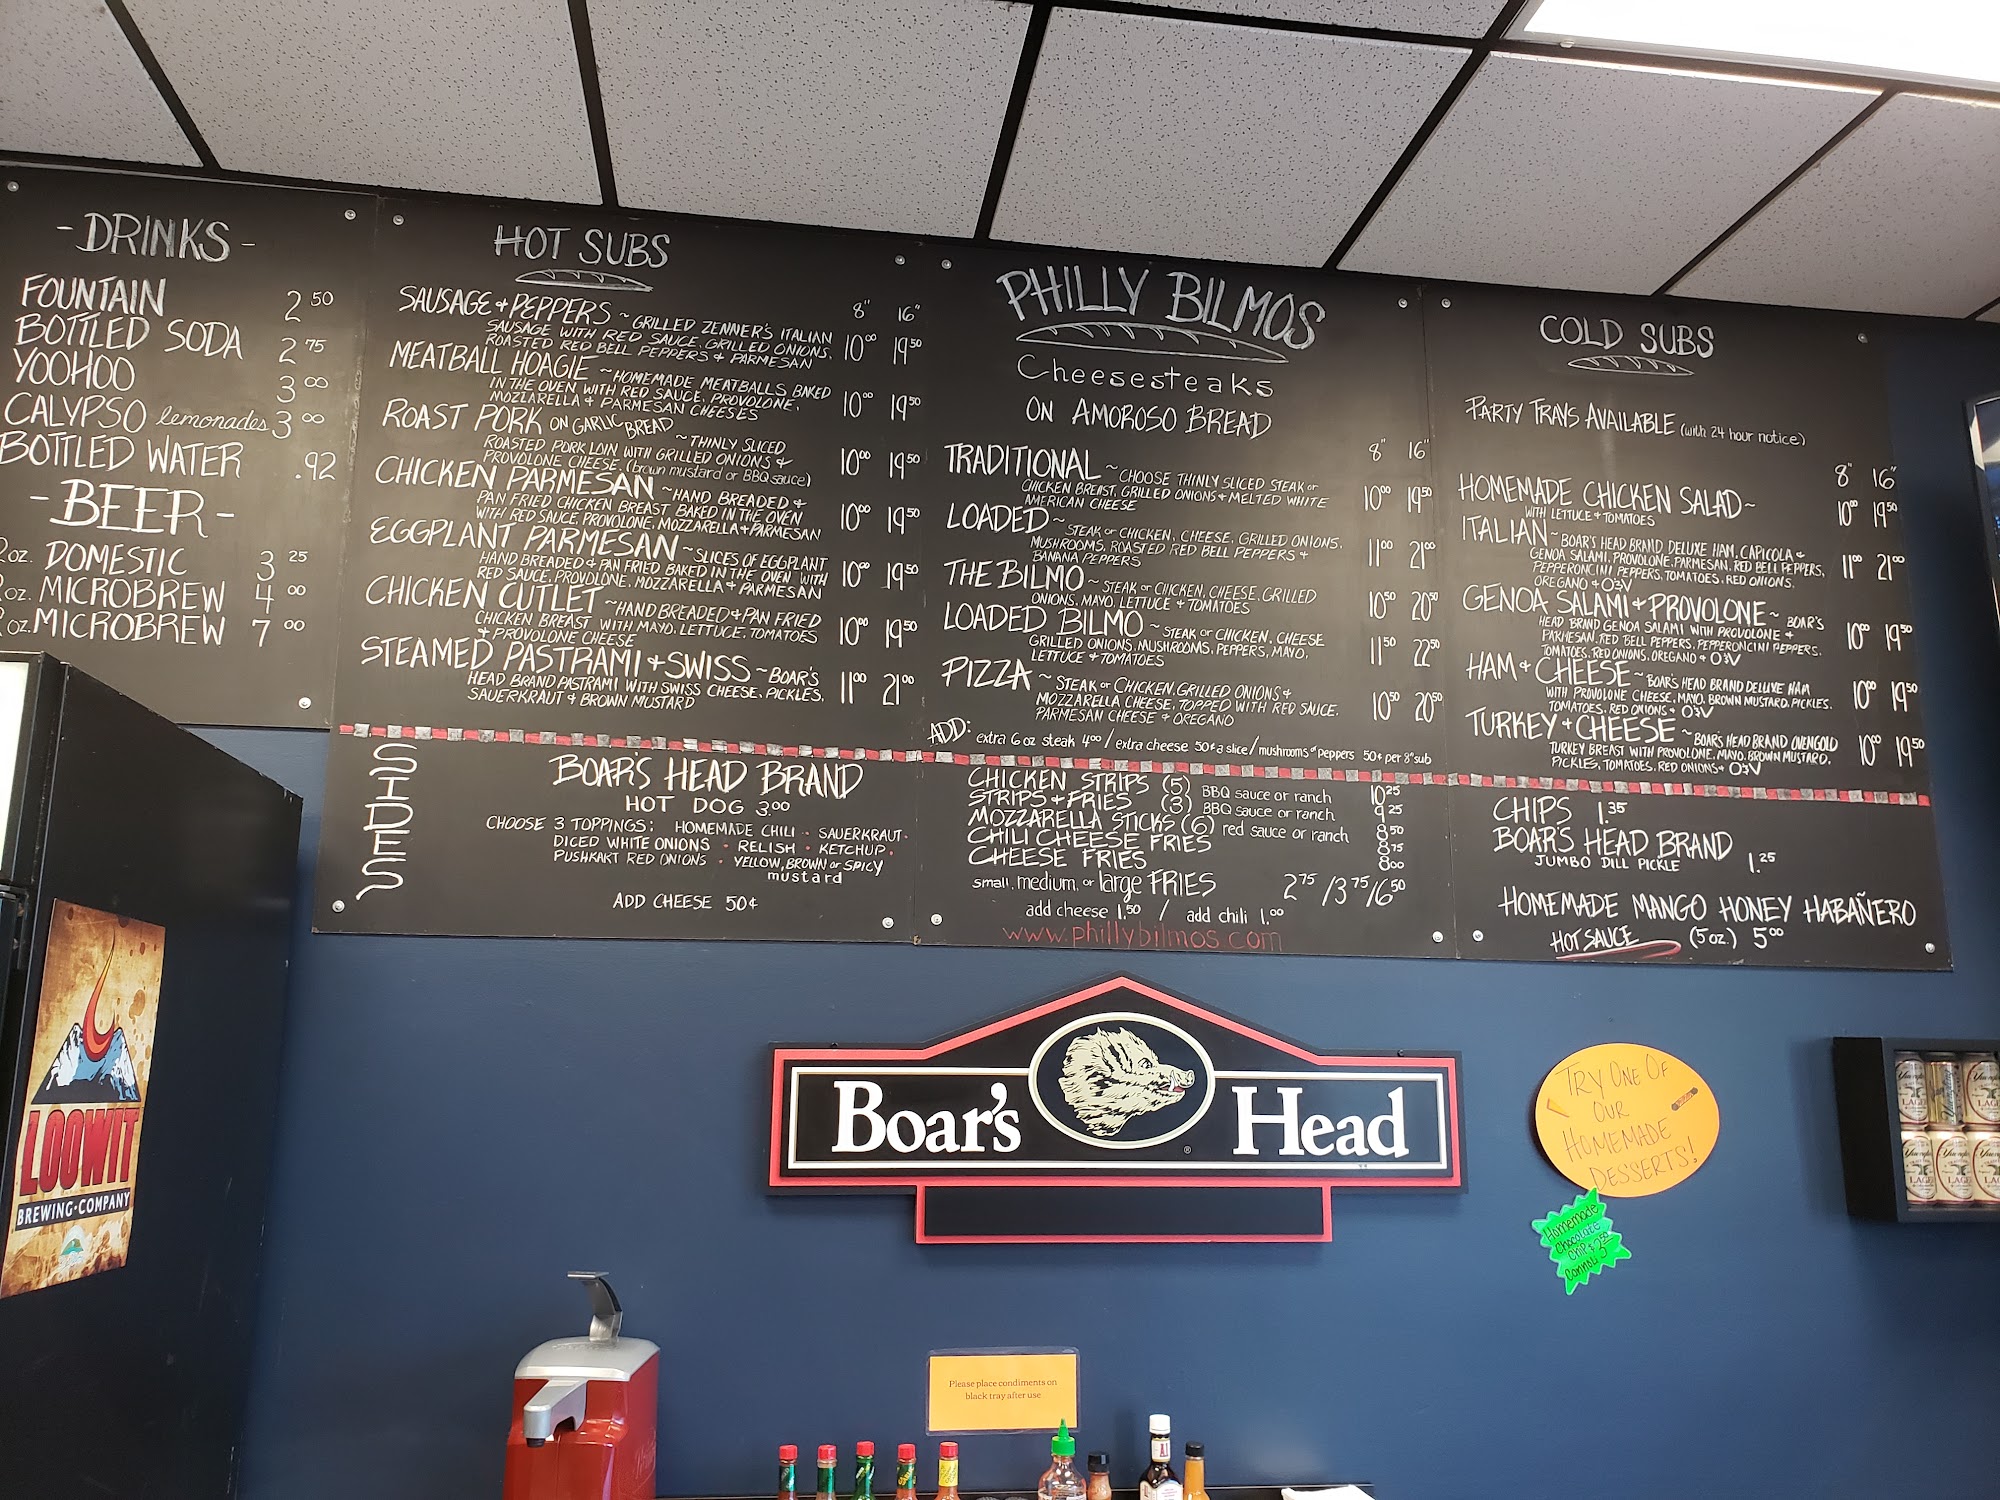 - DRINKS -
FOUNTAIN 2 50
BOTTLED SODA 2 75
YOOHOO 3 00
CALYPSO lemonades 3 00
BOTTLED WATER .92
- BEER -
oz. DOMESTIC 3 25
oz. MICROBREW 4 00
oz. MICROBREW 7 00
HOT SUBS
8" 16"
SAUSAGE + PEPPERS ~ GRILLED ZENNER'S ITALIAN
SAUSAGE WITH RED SAUCE, GRILLED ONIONS,
ROASTED RED BELL PEPPERS + PARMESAN 10 00 19 50
MEATBALL HOAGIE ~ HOMEMADE MEATBALLS BAKED
IN THE OVEN WITH RED SAUCE, PROVOLONE,
MOZZARELLA + PARMESAN CHEESES 10 00 19 50
ROAST PORK ON GARLIC BREAD ~ THINLY SLICED
ROASTED PORK LOIN WITH GRILLED ONIONS +
PROVOLONE CHEESE. (brown mustard or BBQ sauce) 10 00 19 50
CHICKEN PARMESAN ~ HAND BREADED +
PAN FRIED CHICKEN BREAST BAKED IN THE OVEN
WITH RED SAUCE, PROVOLONE, MOZZARELLA + PARMESAN 10 00 19 50
EGGPLANT PARMESAN ~ SLICES OF EGGPLANT
HAND BREADED + PAN FRIED BAKED IN THE OVEN WITH
RED SAUCE, PROVOLONE, MOZZARELLA + PARMESAN 10 00 19 50
CHICKEN CUTLET ~ HAND BREADED + PAN FRIED
CHICKEN BREAST WITH MAYO, LETTUCE, TOMATOES
+ PROVOLONE CHEESE 10 00 19 50
STEAMED PASTRAMI + SWISS ~ BOAR'S
HEAD BRAND PASTRAMI WITH SWISS CHEESE, PICKLES,
SAUERKRAUT & BROWN MUSTARD 11 00 21 00
PHILLY BILMOS
Cheesesteaks
ON AMOROSO BREAD
8" 16"
TRADITIONAL ~ CHOOSE THINLY SLICED STEAK or
CHICKEN BREAST, GRILLED ONIONS + MELTED WHITE
AMERICAN CHEESE 10 00 19 50
LOADED ~ STEAK or CHICKEN, CHEESE, GRILLED ONIONS,
MUSHROOMS, ROASTED RED BELL PEPPERS +
BANANA PEPPERS 11 00 21 00
THE BILMO ~ STEAK or CHICKEN, CHEESE, GRILLED
ONIONS, MAYO, LETTUCE + TOMATOES 10 50 20 50
LOADED BILMO ~ STEAK or CHICKEN, CHEESE
GRILLED ONIONS, MUSHROOMS, PEPPERS, MAYO,
LETTUCE + TOMATOES 11 50 22 50
PIZZA ~ STEAK or CHICKEN, GRILLED ONIONS +
MOZZARELLA CHEESE, TOPPED WITH RED SAUCE,
PARMESAN CHEESE + OREGANO 10 50 20 50
ADD: extra 6 oz steak 4 00 / extra cheese 50¢ a slice / mushrooms or peppers 50¢ per 8" sub
COLD SUBS
PARTY TRAYS AVAILABLE (with 24 hour notice)
8" 16"
HOMEMADE CHICKEN SALAD ~
WITH LETTUCE + TOMATOES 10 00 19 50
ITALIAN ~ BOAR'S HEAD BRAND DELUXE HAM, CAPICOLA +
GENOA SALAMI, PROVOLONE, PARMESAN, RED BELL PEPPERS,
PEPPERONCINI PEPPERS, TOMATOES, RED ONIONS,
OREGANO + O&V 11 00 21 00
GENOA SALAMI + PROVOLONE ~ BOAR'S
HEAD BRAND GENOA SALAMI WITH PROVOLONE +
PARMESAN, RED BELL PEPPERS, PEPPERONCINI PEPPERS,
TOMATOES, RED ONIONS, OREGANO + O&V 10 00 19 50
HAM + CHEESE ~ BOAR'S HEAD BRAND DELUXE HAM
WITH PROVOLONE CHEESE, MAYO, BROWN MUSTARD, PICKLES,
TOMATOES, RED ONIONS + O&V 10 00 19 50
TURKEY + CHEESE ~ BOAR'S HEAD BRAND OVENGOLD
TURKEY BREAST WITH PROVOLONE, MAYO, BROWN MUSTARD,
PICKLES, TOMATOES, RED ONIONS + O&V 10 00 19 50
SIDES
BOAR'S HEAD BRAND
HOT DOG 3.00
CHOOSE 3 TOPPINGS: HOMEMADE CHILI · SAUERKRAUT ·
DICED WHITE ONIONS · RELISH · KETCHUP ·
PUSHKART RED ONIONS · YELLOW, BROWN or SPICY
mustard
ADD CHEESE 50¢
CHICKEN STRIPS (5) BBQ sauce or ranch 10 25
STRIPS + FRIES (3) BBQ sauce or ranch 9 25
MOZZARELLA STICKS (6) red sauce or ranch 8 50
CHILI CHEESE FRIES 8 75
CHEESE FRIES 8 00
small, medium, or large FRIES 2 75 / 3 75 / 6 50
add cheese 1.50 / add chili 1.00
www.phillybilmos.com
CHIPS 1.35
BOAR'S HEAD BRAND
JUMBO DILL PICKLE 1.25
HOMEMADE MANGO HONEY HABAÑERO
HOT SAUCE (5 oz.) 5 00
Boar's Head
®
TRY ONE OF
OUR
HOMEMADE
DESSERTS!
Homemade
Chocolate
Chip $3 50
Cannoli
LOOWIT
BREWING·COMPANY
Please place condiments on
black tray after use
Yuengling
LAGER
A.1